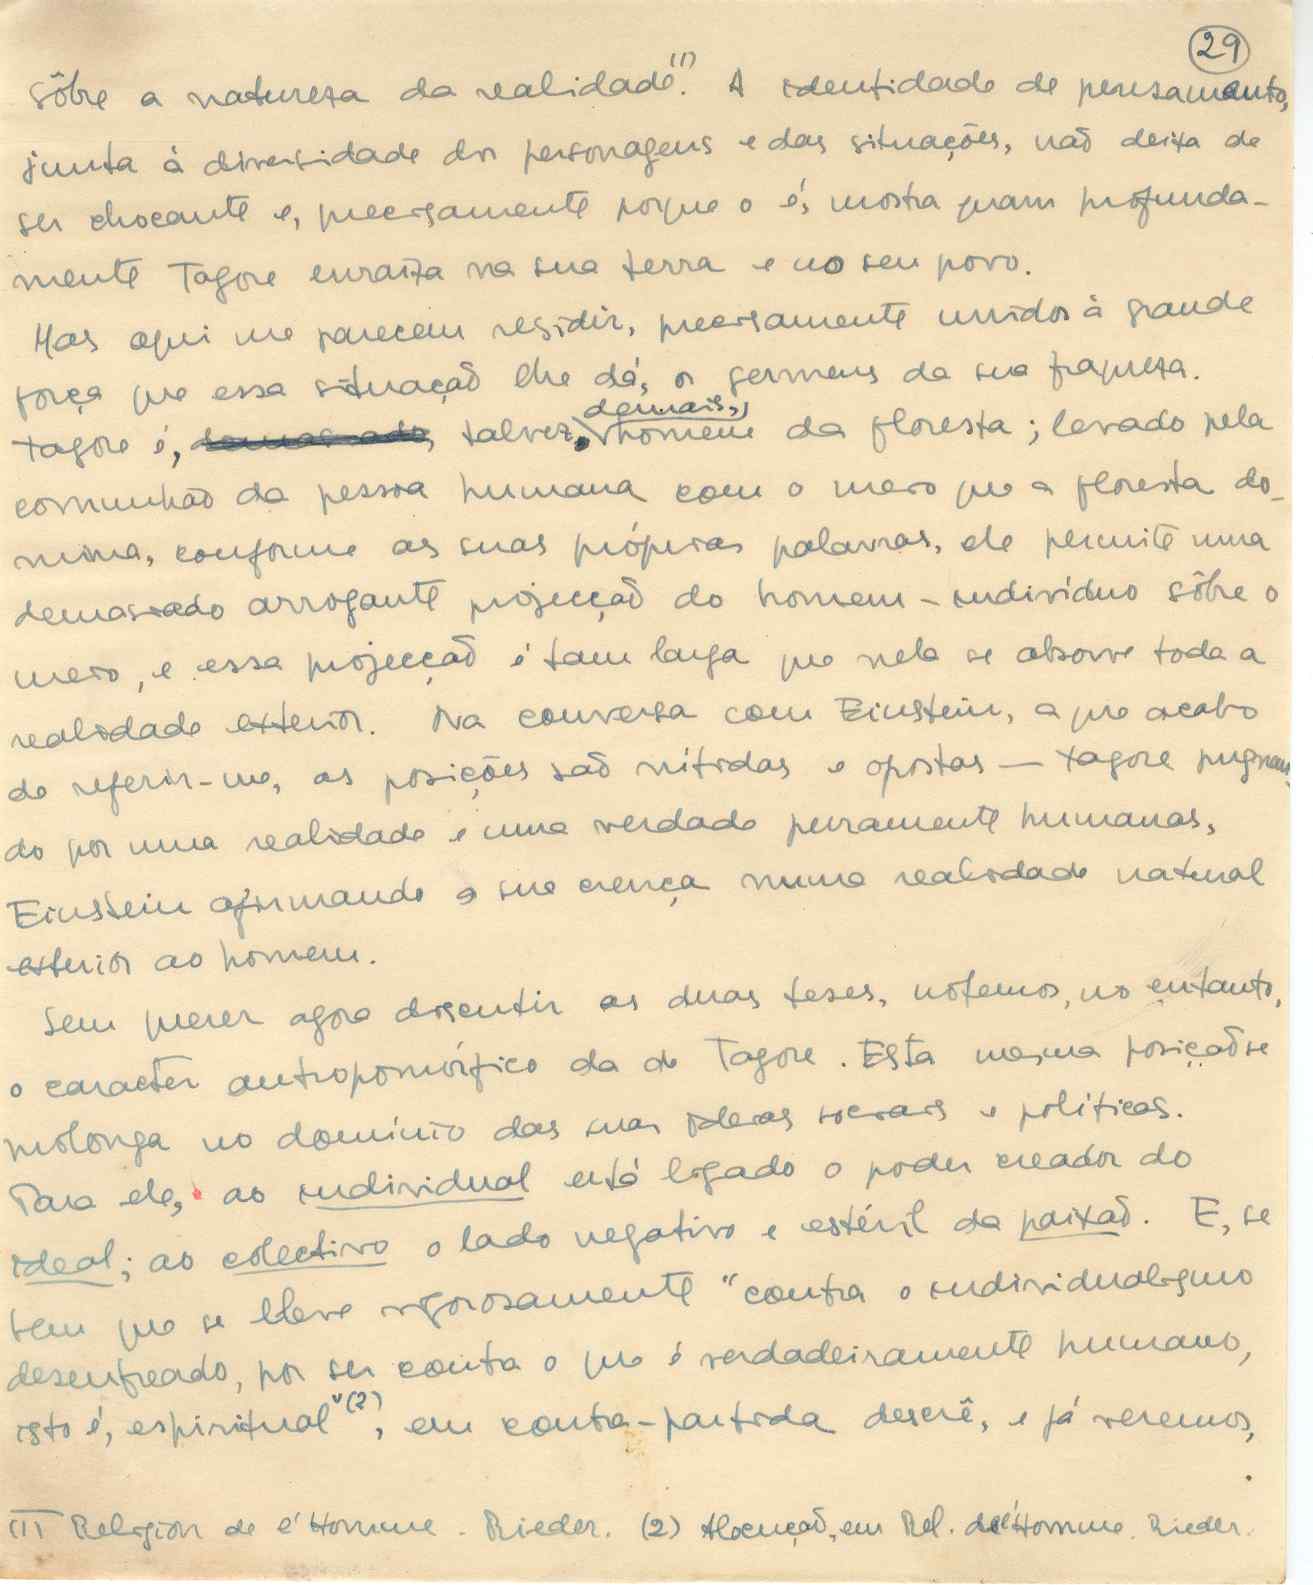 29
sôbre a natureza da realidade(1). A identidade de pensamento,
junta à diversidade dos personagens e das situações, não deixa de
ser chocante e, precisamente porque o é, mostra quam profunda-
mente Tagore enraíza na sua terra e no seu povo.
Mas aqui me parecem residir, precisamente unidos à grande
fôrça que essa situação lhe dá, os germens da sua fraqueza.
Tagore é, talvez, demais, homem da floresta; levado pela
comunhão da pessoa humana com o meio que a floresta do-
mina, conforme as suas próprias palavras, ele permite uma
demasiado arrogante projecção do homem-indivíduo sôbre o
meio, e essa projecção é tam larga que nela se absorve toda a
realidade exterior. Na conversa com Einstein, a que acabo
de referir-me, as posições são nítidas e opostas — Tagore pugnan-
do por uma realidade e uma verdade puramente humanas,
Einstein afirmando a sua crença numa realidade natural
exterior ao homem.
Sem querer agora discutir as duas teses, notemos, no entanto,
o caracter antropomórfico da de Tagore. Esta mesma posição se
prolonga no domínio das suas ideias sociais e políticas.
Para ele, ao individual está ligado o poder creador do
ideal; ao colectivo o lado negativo e estéril da paixão. E, se
bem que se eleve rigorosamente "contra o individualismo
desenfreado, por ser contra o que é verdadeiramente humano,
isto é, espiritual"(2), em contra-partida descrê, e já veremos,
(1) Religion de l'Homme. Rieder. (2) Alocução, em Rel. de l'Homme. Rieder.